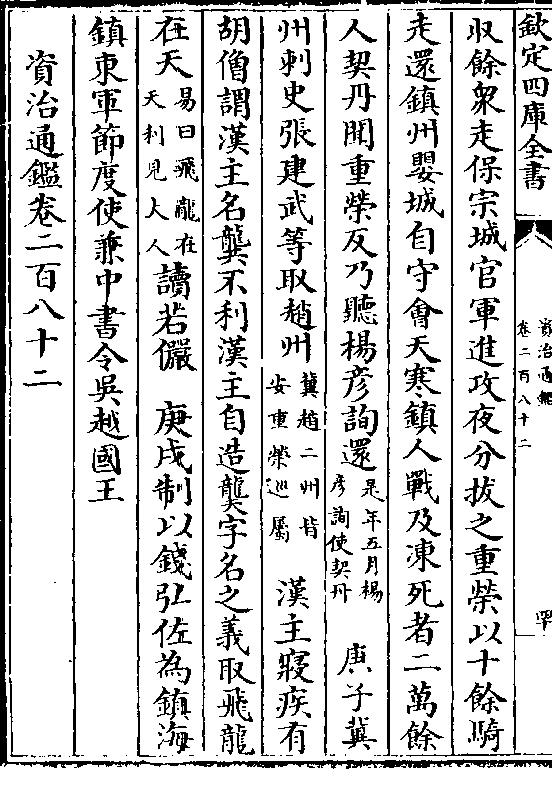 欽定四庫全書
資治通鑑
卷二百八十二
収餘衆走保宗城官軍進攻夜分拔之重榮以十餘騎
走還鎮州嬰城自守會天寒鎮人戰及凍死者二萬餘
人契丹聞重榮反乃聽楊彦詢還是年五月楊彦詢使契丹 庚子冀
州刺史張建武等取趙州冀趙二州皆安重榮巡屬 漢主寢疾有
胡僧謂漢主名龔不利漢主自造龑字名之義取飛龍
在天易曰飛龍在天利見大人讀若儼 庚戌制以錢弘佐為鎮海
鎮東軍節度使兼中書令吳越國王
資治通鑑卷二百八十二